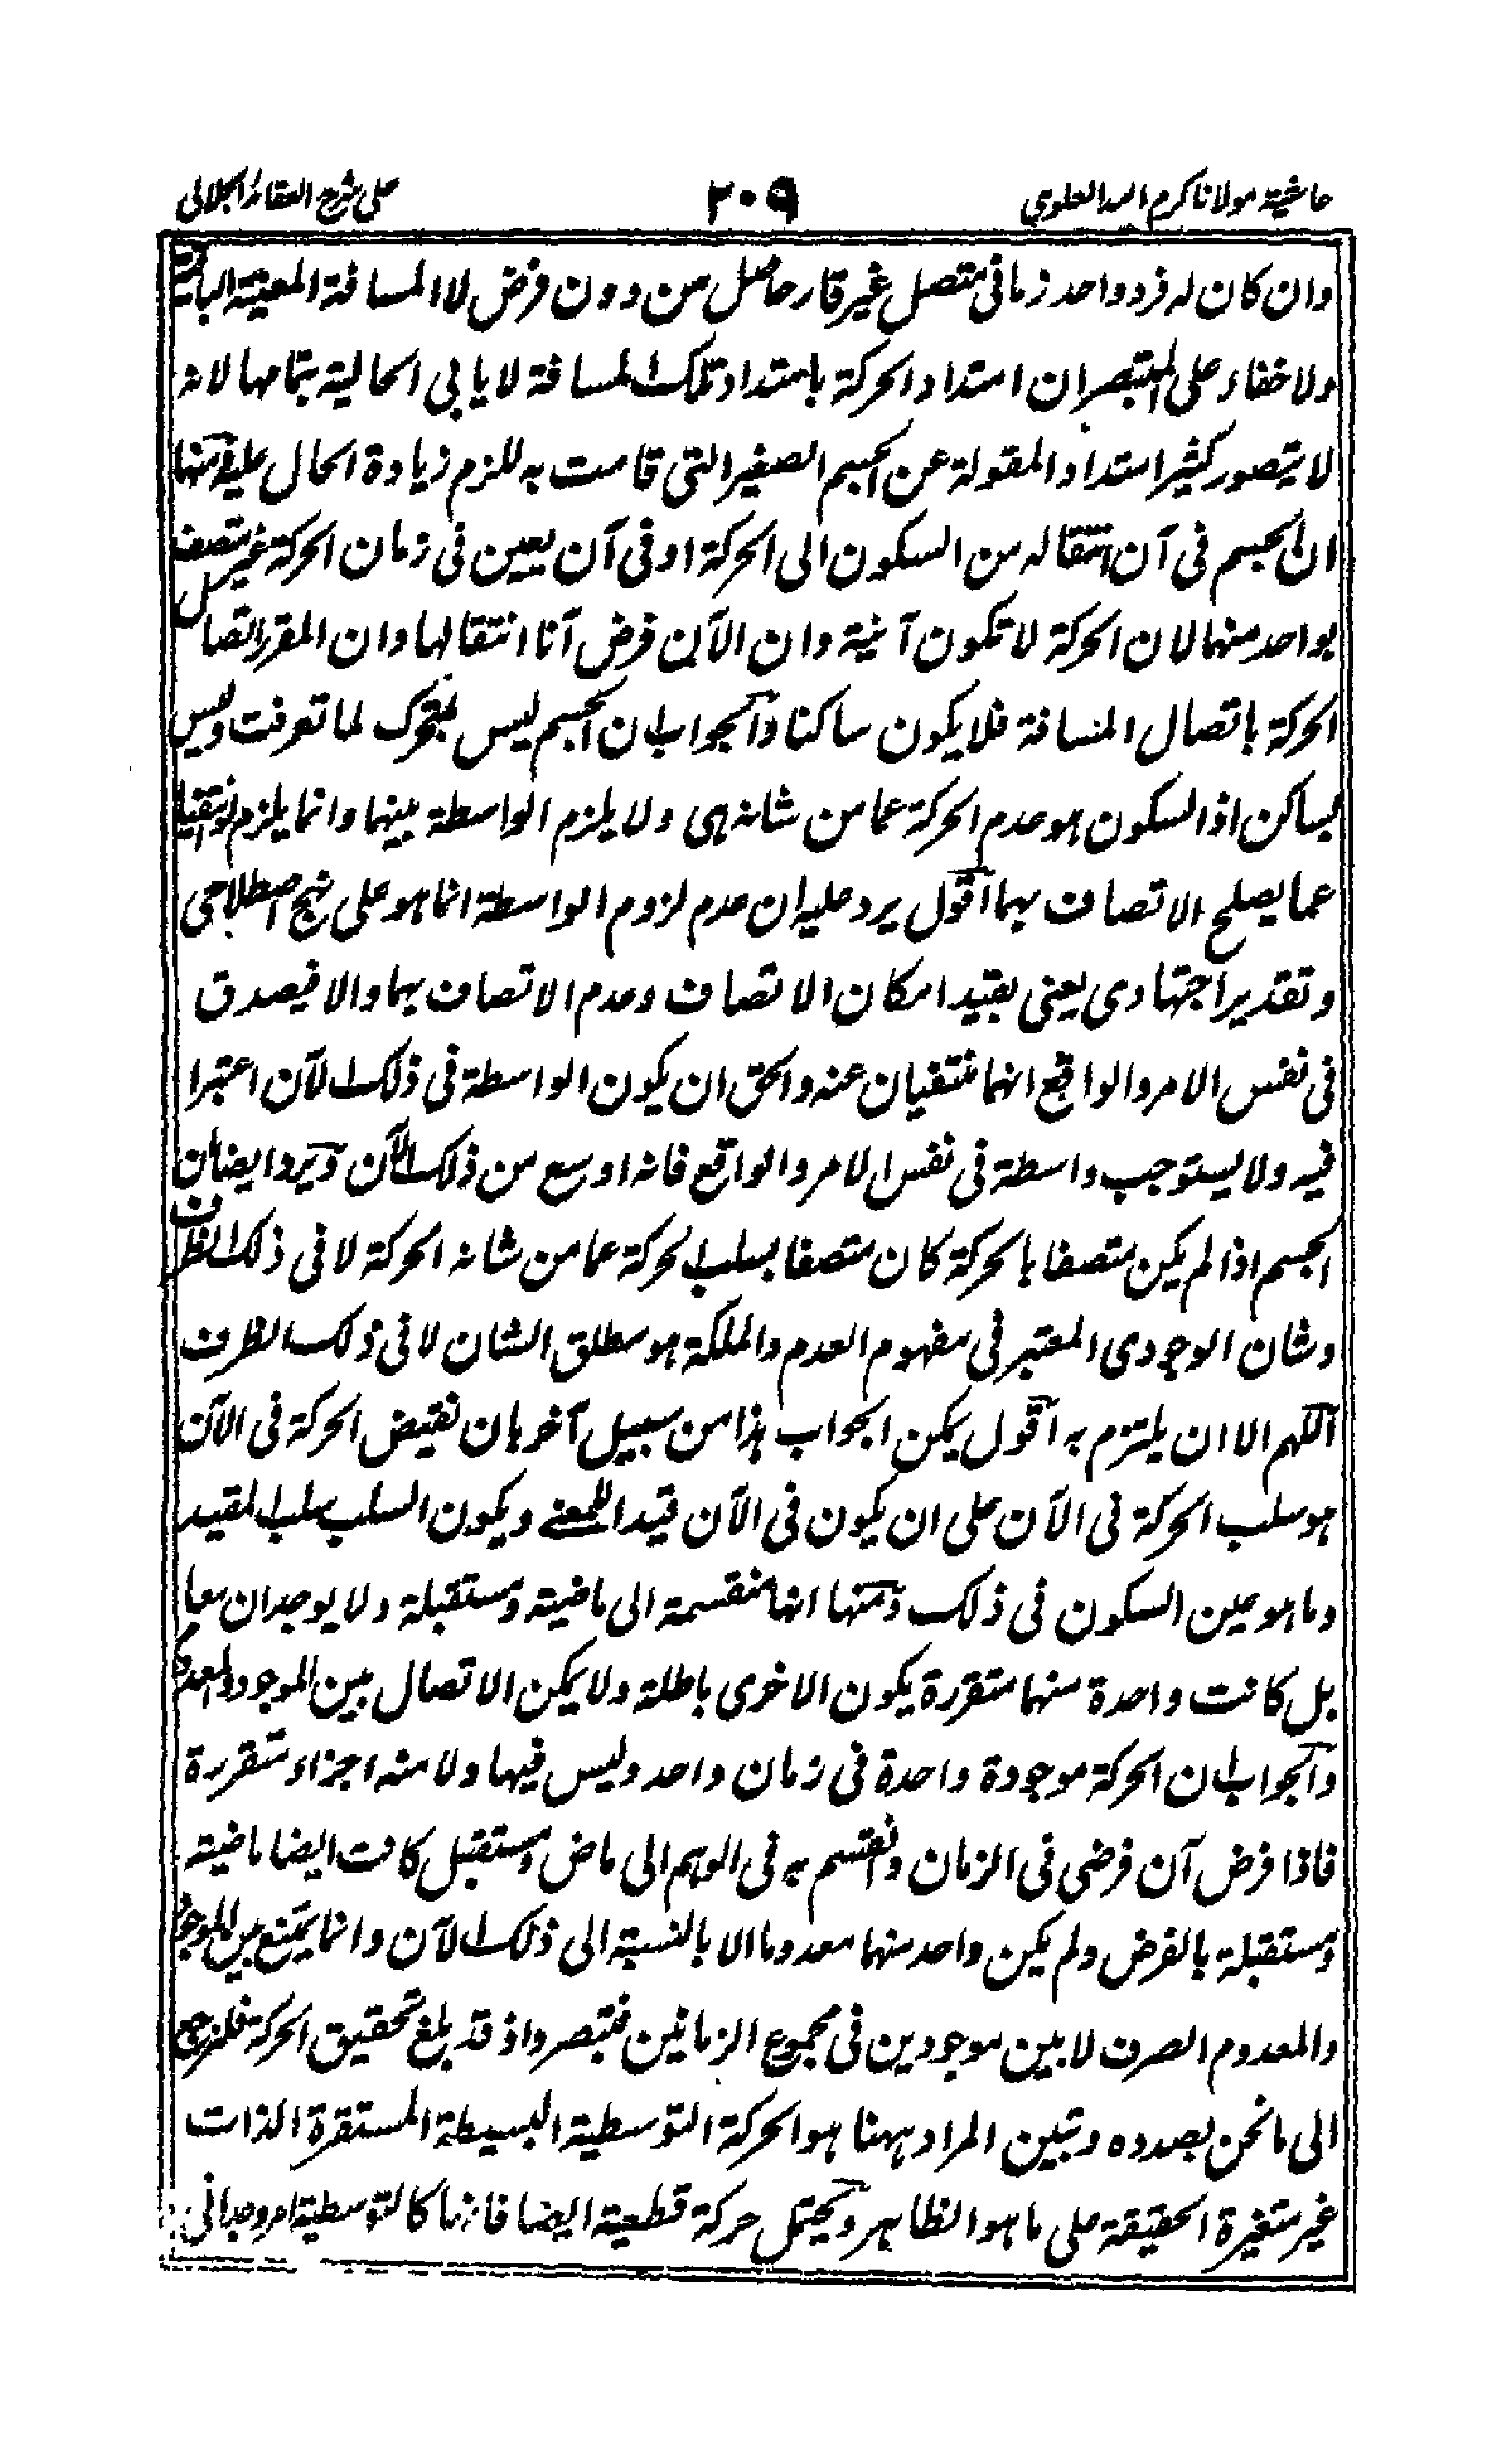 حاشية مولانا كرم الله العلوي ٢٠٩ على شرح العقائد الجلالي
وان كان له فرد واحد زمانى متصل غير قار حاصل من دون فرض لا المسافة المعينة الباقية
ولا خفاء على المتبصر ان امتداد الحركة بامتداد تلك المسافة لا يابى الحالية بتمامها لانه
لا يتصور كثير امتداد المقولة عن الجسم الصغير التى قامت به للزم زيادة الحال عليه ومنها
ان الجسم فى آن انتقاله من السكون الى الحركة او فى آن يعين فى زمان الحركة غير متصف
بواحد منهما لان الحركة لا تكون آنية وان الآن فرض آنا انتقالها وان المقرر اتصال
الحركة باتصال المسافة فلا يكون ساكنا والجواب ان الجسم ليس بمتحرك لما تعرفت وليس
بساكن اذ السكون هو عدم الحركة عما من شانه هى ولا يلزم الواسطة بينهما وانما يلزم لو انتفيا
عما يصلح الاتصاف بهما اقول يرد عليه ان عدم لزوم الواسطة انما هو على نهج اصطلاحى
وتقدير اجتهادى يعنى بقيد امكان الاتصاف وعدم الاتصاف بهما والا فيصدق
فى نفس الامر والواقع انهما منتفيان عنه والحق ان يكون الواسطة فى ذلك الآن اعتبرا
فيه ولا يستوجب واسطة فى نفس الامر والواقع فانه اوسع من ذلك الآن ويرد ايضا ان
الجسم اذا لم يكن متصفا بالحركة كان متصفا بسلب الحركة عما من شانه الحركة لا فى ذلك الظرف
وشان الوجودى المعتبر فى مفهوم العدم والملكة هو مطلق الشان لا فى ذلك الظرف
اللهم الا ان يلتزم به اقول يمكن الجواب هذا من سبيل آخر بان نقيض الحركة فى الآن
هو سلب الحركة فى الآن على ان يكون فى الآن قيدا للمعنے ويكون السلب سلب المقيد
وما هو عين السكون فى ذلك ومنها انها منقسمة الى ماضية ومستقبلة ولا يوجدان معا
بل كانت واحدة منهما متقررة يكون الاخرى باطلة ولا يمكن الاتصال بين الموجود والمعدوم
والجواب ان الحركة موجودة واحدة فى زمان واحد وليس فيها ولا منه اجزاء متقررة
فاذا فرض آن فرضى فى الزمان وانقسم به فى الوهم الى ماض ومستقبل كانت ايضا ماضية
ومستقبلة بالفرض ولم يكن واحد منهما معدوما الا بالنسبة الى ذلك الآن وانما يمتنع بين الموجود
والمعدوم الصرف لا بين موجودين فى مجموع الزمانين فتبصر واذ قد بلغ تحقيق الحركة فلنرجع
الى ما نحن بصدده وتبين المراد ههنا هو الحركة التوسطية البسيطة المستقرة الذات
غير متغيرة الحقيقة على ما هو الظاهر ويحتمل حركة قطعية ايضا فانها كالتوسطية امر وجدانى